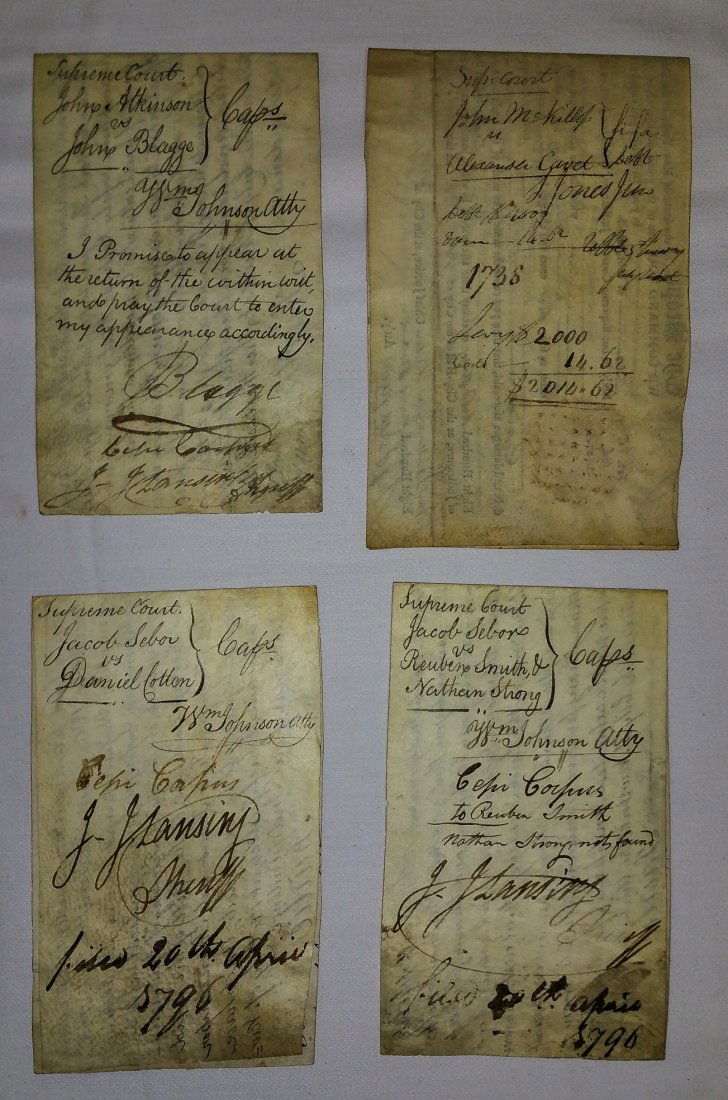 Supreme Court.
John Atkinson
vs
John Blagge
Caps
Wm Johnson Atty
I Promise to appear at
the return of the within writ,
and pray the Court to enter
my appearance accordingly.
Blagge
Cepi Corpus
J. J Lansing Sheriff
Sup: Court
John McKillop
vs
Alexander
fi fa
debt
Jones Jun
14.62
1735
Levy $ 2000
Costs 14.62
$ 2014.62
Supreme Court.
Jacob Sebor
vs
Daniel Cotton
Caps
Wm Johnson Atty
Cepi Corpus
J. J Lansing
Sheriff
filed 20th April
1796
Supreme Court
Jacob Sebor
vs
Reuben Smith, &
Nathan Strong
Caps
Wm Johnson Atty
Cepi Corpus
to Reuben Smith
Nathan Strong not found
J. J Lansing
Sheriff
filed 20th April
1796